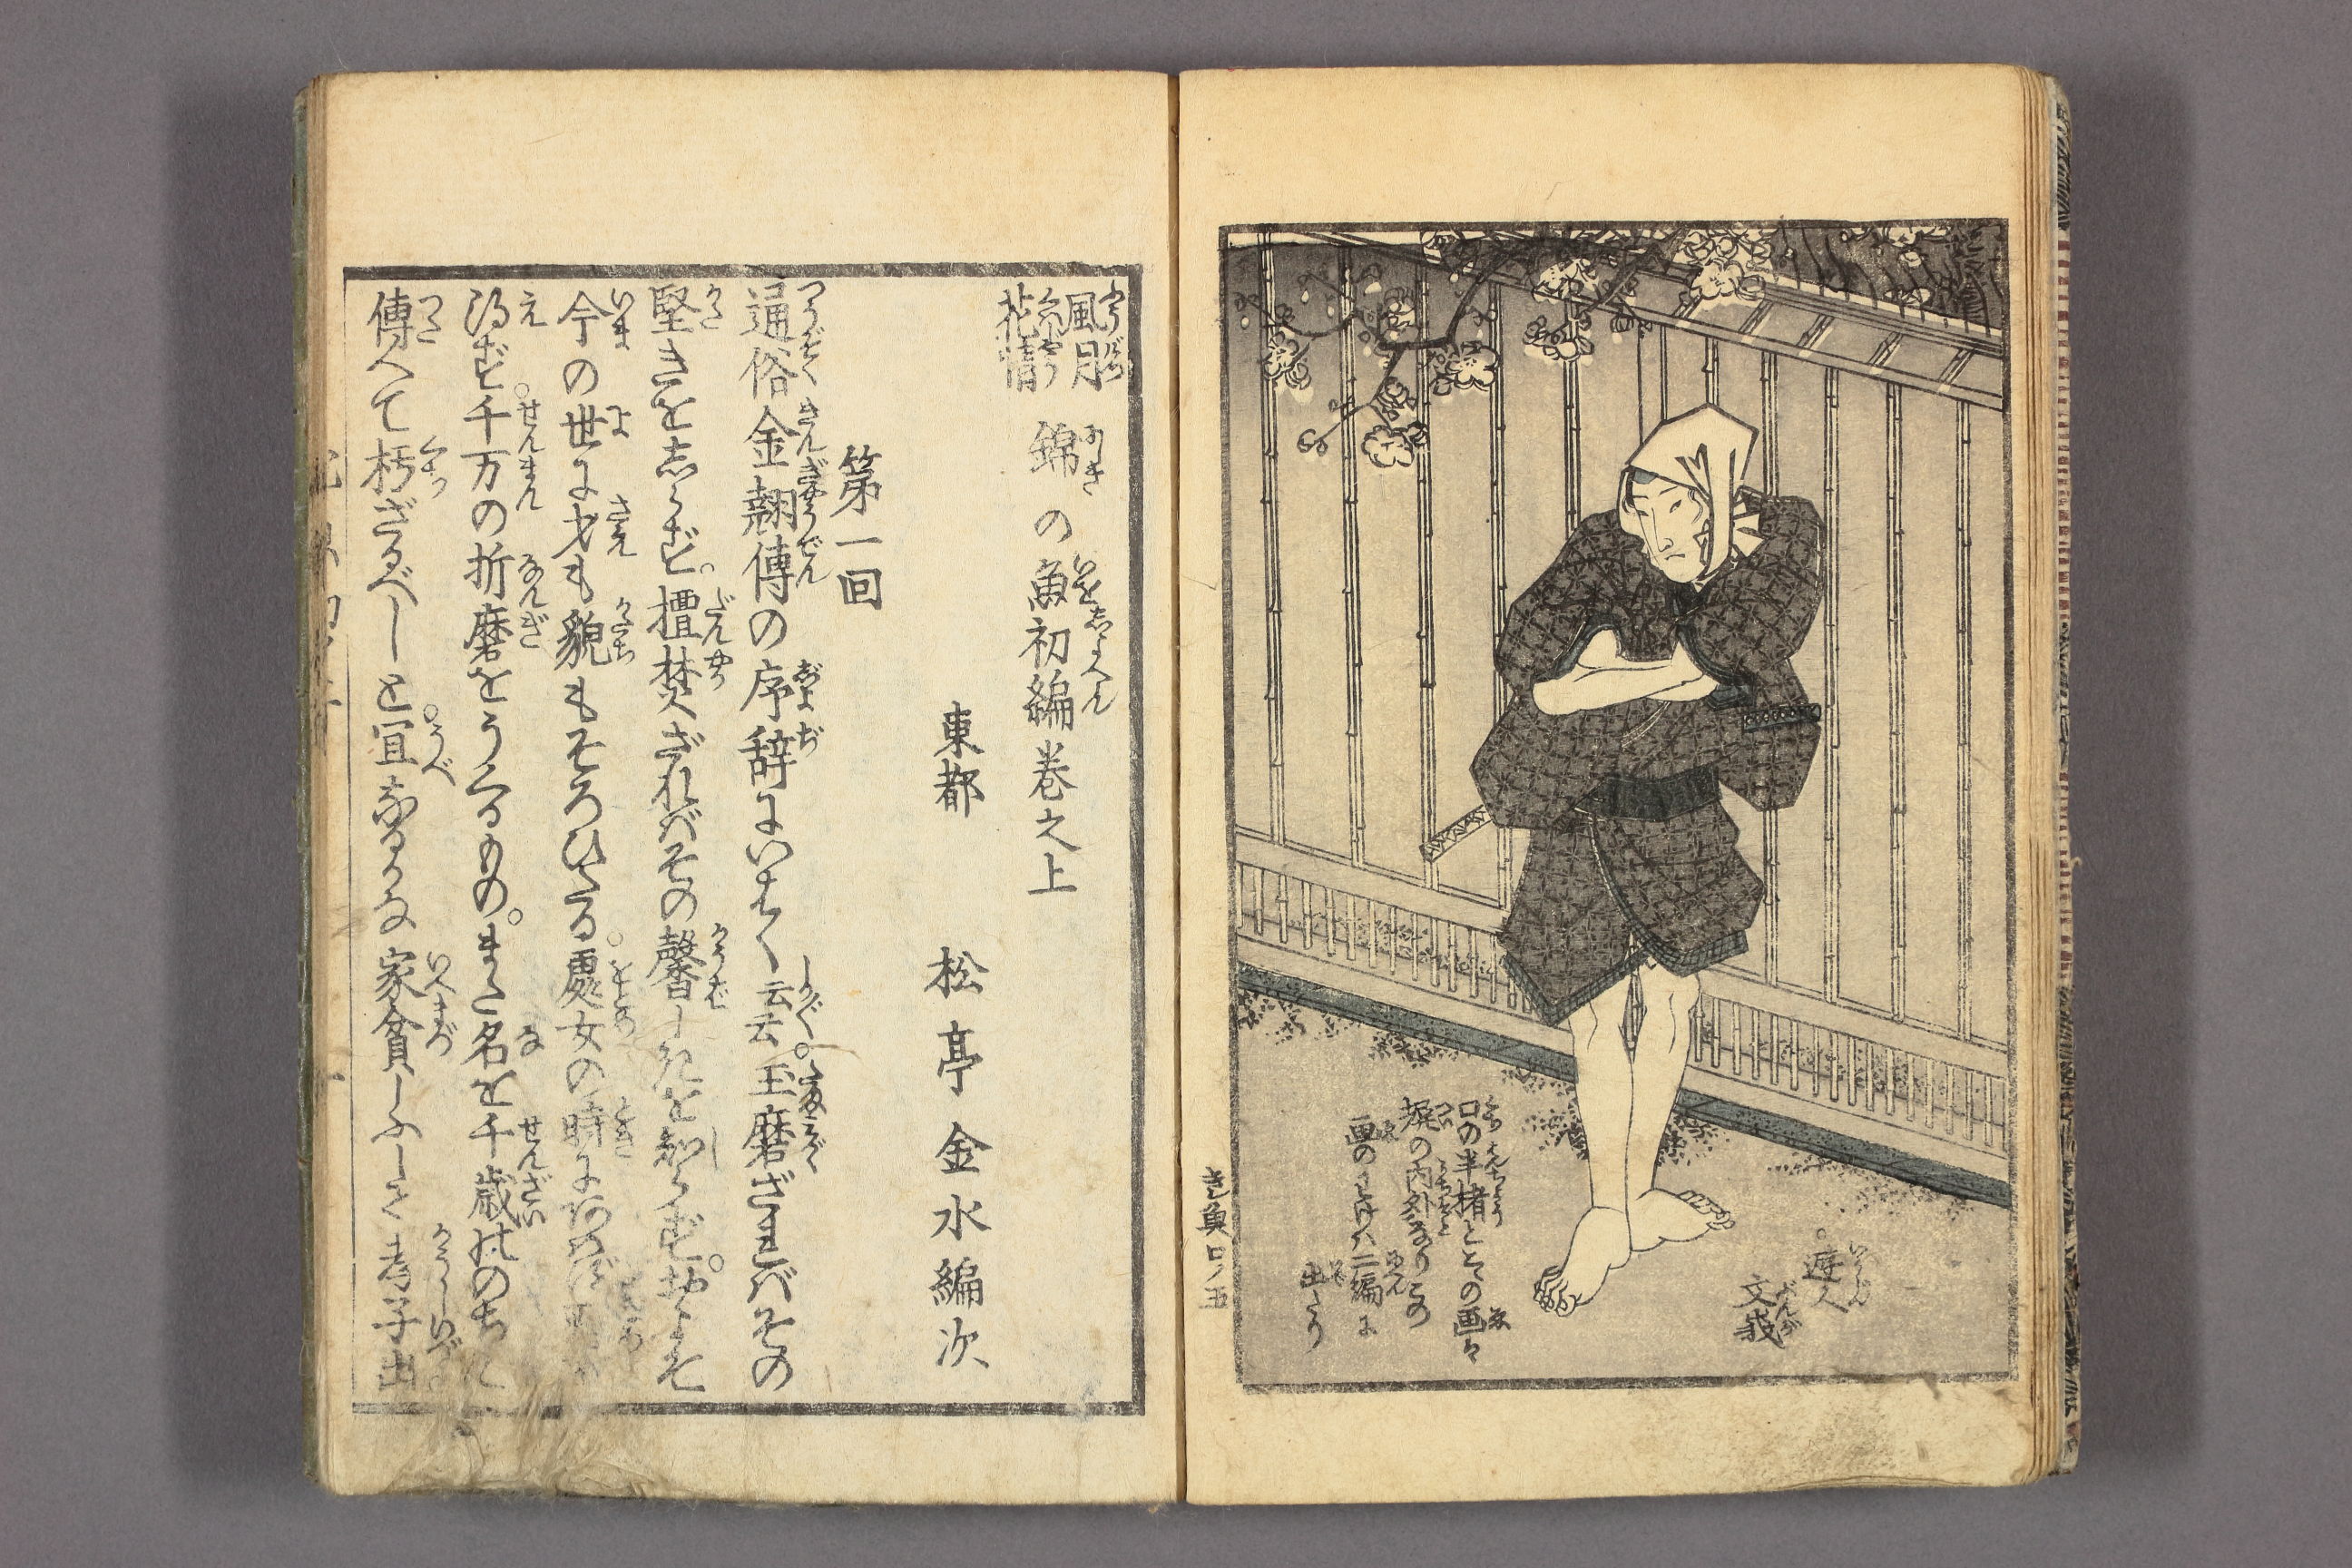 遊人
文峩
口の半楮とその画々
塀の内外なりこの
画のわけハ二編に
出たり
き魚口ノ五
風月
花情
錦の魚初編巻之上
東都 松亭金水編次
第一回
通俗金翹傳の序辞にいはく云云玉磨ざればその
堅きを志らず。檀焚ざればその馨しきを知らず。
今の世に才も貌もそろひたる。處女の時に
得ず。千万の折磨をうくるもの。また名を千歳ののちに
傳へて朽ざるべしと。宜なるかな家貧しふして孝子出